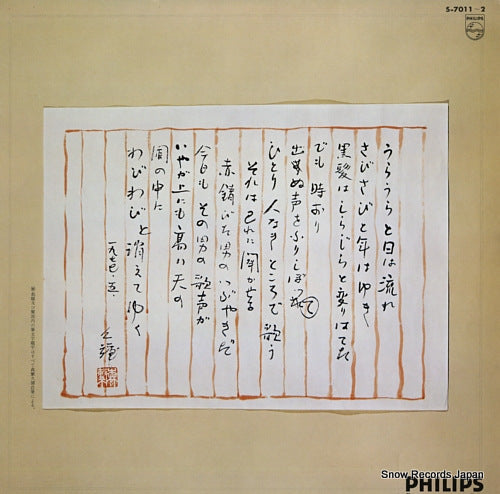 S-7011~2
PHILIPS
うらうらと日は流れ
さびさびと年はゆき
黒髪はしらじらと変りはてた
でも 時おり
出ぬ声をふりしぼって
ひとり 人なきところで歌う
それは己れに聞かせる
赤錆びた男のつぶやきだ
今日も その男の歌声が
いやが上にも高い天の
闇の中に
わびわびと消えてゆく
一九七〇、五、
PHILIPS
Snow Records Japan
www.snowrecords.jp